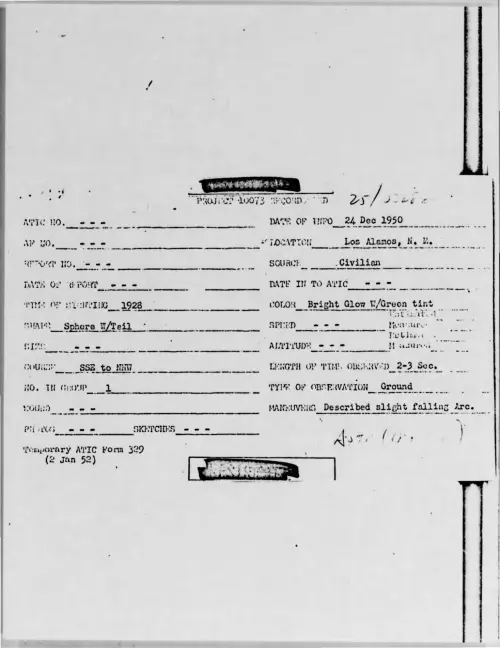 PROJECT 10073 RECORD
ATIC NO. - - -
DATE OF INFO 24 Dec 1950
AF NO. - - -
LOCATION Los Alamos, N. M.
REPORT NO. - - -
SOURCE Civilian
DATE OF REPORT - - -
DATE IN TO ATIC - - -
TIME OF SIGHTING 1928
COLOR Bright Glow W/Green tint
SHAPE Sphere W/Tail
SPEED - - -
SIZE - - -
ALTITUDE - - -
COURSE SSE to NNW
LENGTH OF TIME OBSERVED 2-3 Sec.
NO. IN GROUP 1
TYPE OF OBSERVATION Ground
SOUND - - -
MANEUVERS Described slight falling Arc.
PHOTOS - - - SKETCHES - - -
Temporary ATIC Form 329
(2 Jan 52)